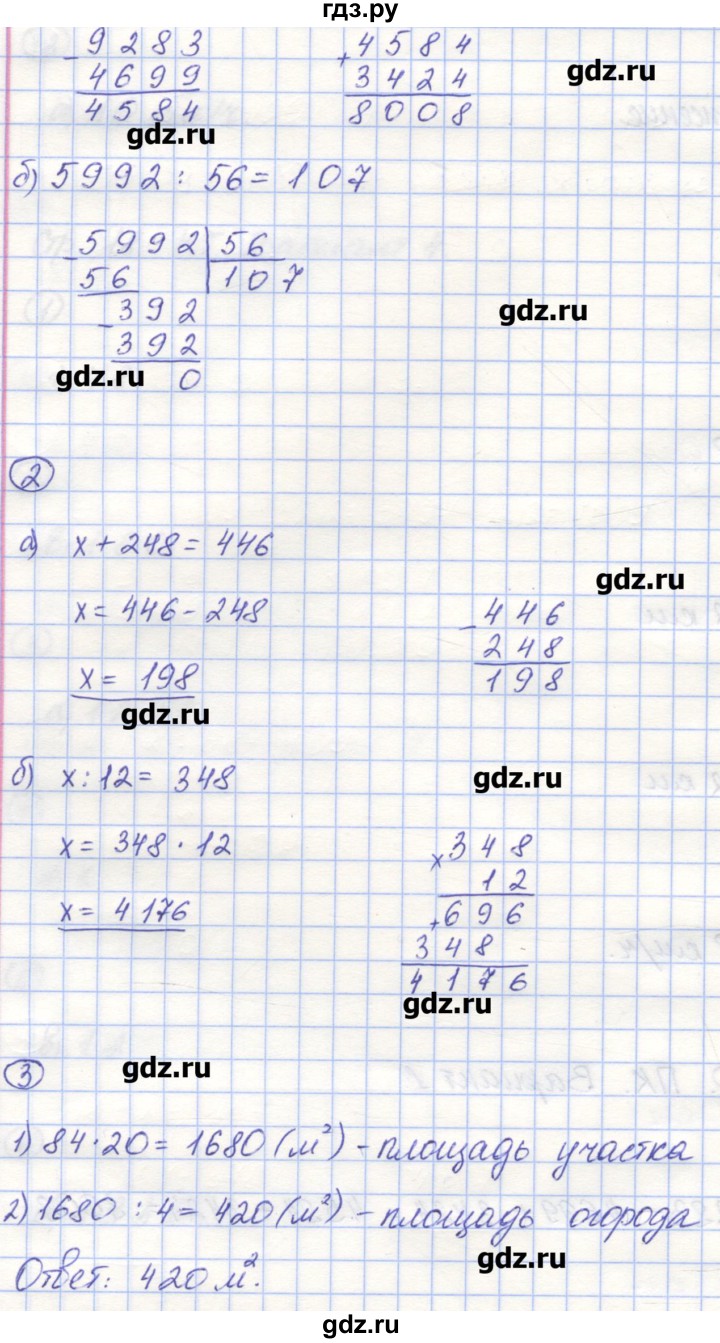 гдз.ру
- 9283 + 4584
4699 3424 gdz.ru
4584 8008
gdz.ru
б) 5992 : 56 = 107
- 5992 | 56
56 107
- 392 gdz.ru
392
gdz.ru 0
2
а) x + 248 = 446
gdz.ru
x = 446 - 248 - 446
248
x = 198 198
gdz.ru
б) x : 12 = 348 gdz.ru
x = 348 · 12 x 348
12
x = 4176 + 696
348
4176
gdz.ru
3 gdz.ru
1) 84 · 20 = 1680 (м²) - площадь участка
2) 1680 : 4 = 420 (м²) - площадь огорода
gdz.ru
Ответ: 420 м².
gdz.ru